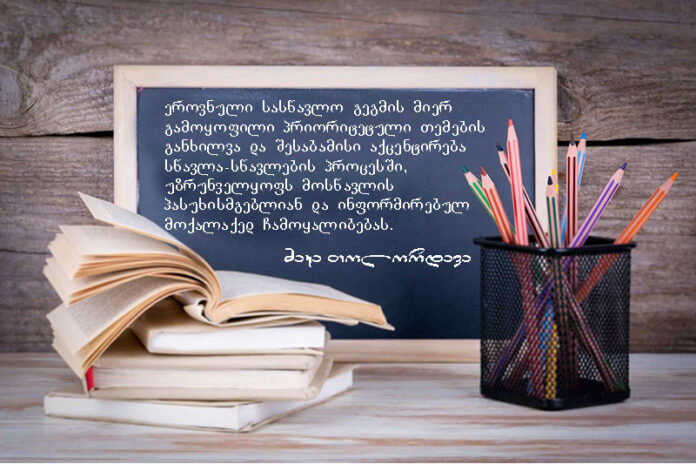 ეროვნული სასწავლო გეგმის მიერ
გამოყოფილი პრიორიტეტული თემების
განხილვა და შესაბამისი აქცენტირება
სწავლა-სწავლების პროცესში,
უზრუნველყოფს მოსწავლის
პასუხისმგებლიან და ინფორმირებულ
მოქალაქედ ჩამოყალიბებას.
მაკა თოლორდავა